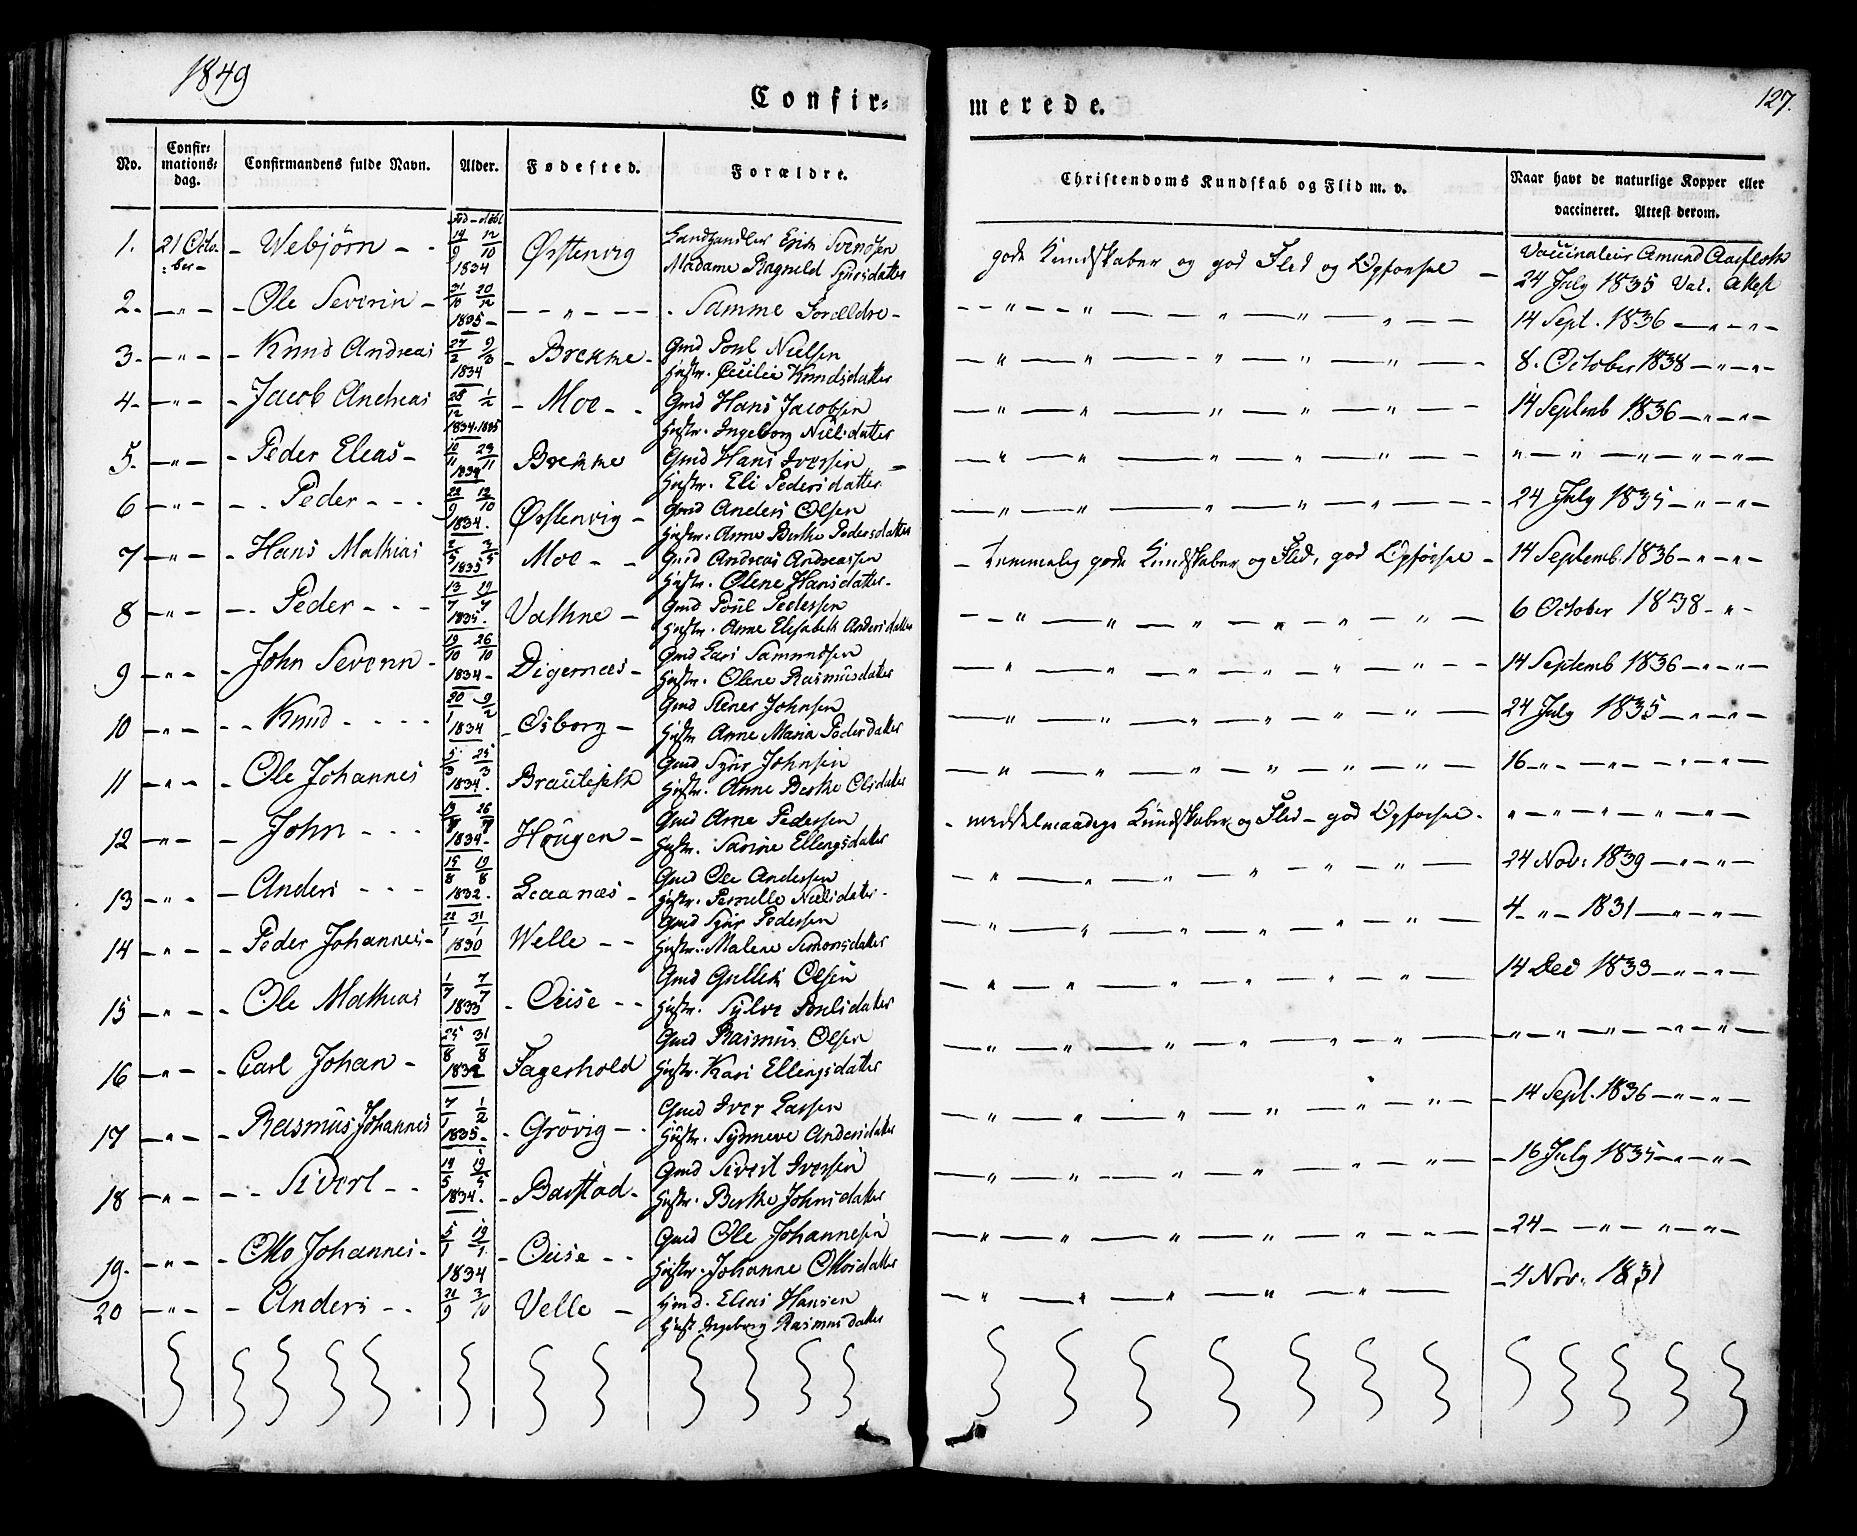 1849
Confir=
merede.
127.
No.
Confir=
mations=
dag.
Confirmandens fulde Navn.
Alder.
Fødested.
Forældre.
Christendoms Kundskab og Flid m. v.
Naar havt de naturlige Kopper eller
vaccineret. Attest derom.
1. 21 Octo- Webjörn 14/9 12/10 1834 Örstenvig Landhandler Erik Svendsen
:ber- Madame Ragneld Sjursdatter
gode Kundskaber og god Flid og Opförsel
Vaccinateur Amund Aarfloth
24 July 1835 Vac. Attest
2. Ole Severin 31/10 20/12 1835 Samme Forældre
14 Sept. 1836
3. Knud Andreas 27/2 9/3 1834 Brekke Gmd Poul Nielsen
Hustr. Cecilie Knudsdatter
8. October 1838
4. Jacob Andreas 28/12 1/2 1834.1835 Moe Gmd Hans Jacobsen
Hustr. Ingeborg Nielsdatter
14 Septemb 1836
5. Peder Eleas 10/11 23/11 1834 Brekke Gmd Hans Iversen
Hustr. Eli Pedersdatter
6 Peder 22/9 12/10 1834. Örstenvig Gmd Anders Olsen
Hustr. Anne Berthe Pedersdatter
24 July 1835
7 Hans Mathias 3/5 1835 Moe Gmd Andreas Andreassen
Hustr. Olene Hansdatter
temmelig gode Kundskaber og Flid, god Opförsel
14 Septemb. 1836
8 Peder 13/7 19/7 1835. Vathne Gmd Poul Pedersen
Hustr. Anne Elisabeth Andersdatter
6 October 1838
9 John Severin 19/10 26/10 1834 Digernæs Gmd Lars Samundsen
Hustr. Olene Rasmusdatter
14 Septemb 1836
10 Knud 20/1 9/2 1834 Osborg Gmd Stener Johnsen
Hustr Anne Maria Pedersdatter
24 July 1835
11 Ole Johannes 5/3 25/3 1834. Brautesæth Gmd Sjur Johnsen
Hustr. Anne Berthe Olsdatter
16
12 John 1834 Hougen Gmd Arne Pedersen
Hustr. Sarine Ellingsdatter
meddelmaadige Kundskaber og Flid - god Opförsel.
13 Anders 15/8 19/8 1832. Leaanæs Gmd Ole Andersen
Hustr. Pernille Nielsdatter
24 Nov. 1839
14 Peder Johannes 22/1 31/1 1830 Welle Gmd Sjur Pedersen
Hustr. Malene Simonsdatter
4 1831
15 Ole Mathias 1/7 7/7 1833 Oeise Gmd Gullik Olsen
Hustr. Sylve Poulsdatter
14 Dec 1833
16 Carl Johan 25/8 31/8 1834 Fagerhold Gmd Rasmus Olsen
Hustr. Kari Ellingsdatter
17 Rasmus Johannes 7/1 1/2 1835 Grövig Gmd Iver Larsen
Hustr. Synneve Andersdatter
14 Sept. 1836
18 Sivert 14/5 19/5 1834. Barstad Gmd Sivert Iversen
Hustr. Berthe Johnsdatter
16 July 1835
19. Otto Johannes 5/1 19/1 1834 Oeise Gmd Ole Johannesen
Hustr. Johanne Ottosdatter
24
20 Anders 21/9 3/10 Velle Hmd. Elias Hansen
Hust Ingeborg Rasmusdatter
4 Nov. 1831